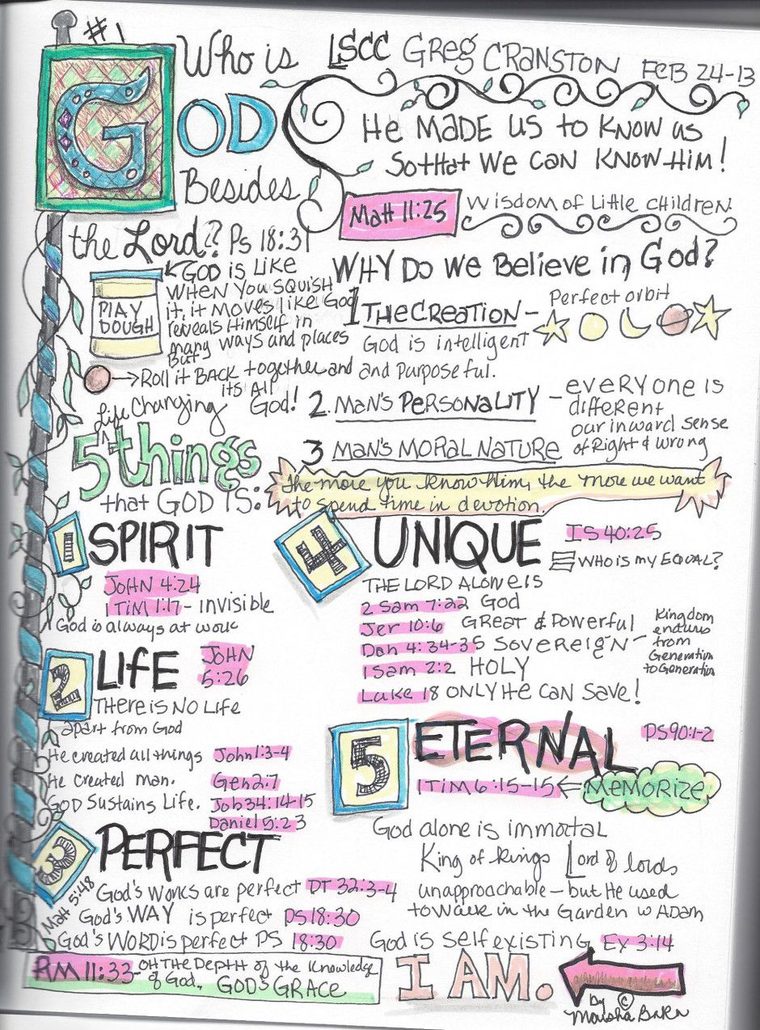 #1
Who is
GOD
Besides
the Lord? Ps 18:31
LSCC Greg CRANSTON FEB 24-13
He MADE US to KNOW US
So that We CAN KNOW Him!
Matt 11:25 Wisdom of Little children
PLAY
DOUGH
GOD is Like
WHEN YOU SQUISH
it, it moves like God
reveals Himself in
many ways and places
But
Roll it BACK together and
its All
God!
WHY Do We Believe in God?
1 THE CREATION - Perfect orbit
God is intelligent
and Purposeful.
2. MAN'S PERSONALITY - everyone is
different
3 MAN'S MORAL NATURE our inward sense
of Right & wrong
Life Changing
5 things
that GOD IS:
the more you know Him, the more we want
to spend time in devotion.
1 SPIRIT
JOHN 4:24
1 TIM 1:17 - INVISIBLE
God is always at work
2 LIFE JOHN
5:26
THERE IS NO LIFE
apart from God
He created all things John 1:3-4
He created man. Gen 2:7
GOD Sustains Life. Job 34:14-15
Daniel 5:23
3 PERFECT
Matt 5:48
God's works are perfect DT 32:3-4
God's WAY is perfect PS 18:30
God's WORD is perfect PS 18:30
RM 11:33 - OH THE DEPTH of the Knowledge
of God. GOD'S GRACE
4 UNIQUE IS 40:25
WHO IS MY EQUAL?
THE LORD ALONE IS
2 Sam 7:22 God
Jer 10:6 GREAT & Powerful
Dan 4:34-35 Sovereign - Kingdom
endures
from
Generation
to Generation
1 Sam 2:2 HOLY
Luke 18 ONLY He CAN SAVE!
5 ETERNAL PS 90:1-2
1 TIM 6:15-15 MEMORIZE
God alone is immortal
King of Kings Lord of lords
unapproachable - but He used
to Walk in the Garden w Adam
God is Self existing EX 3:14
I AM.
by ©
Marsha Baker